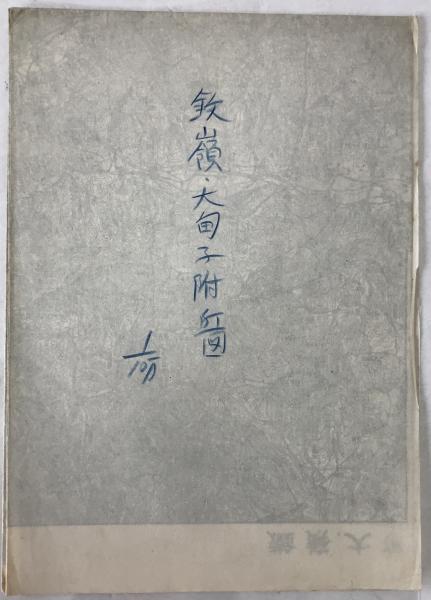 鉄嶺・大甸子附近図
1/10万